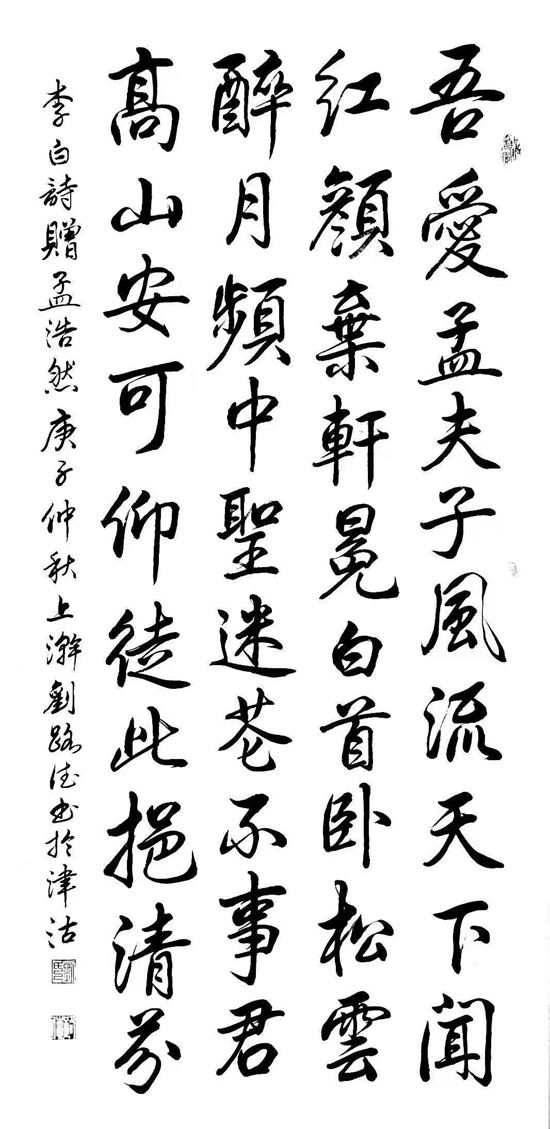 吾愛孟夫子風流天下聞
紅顏棄軒冕白首卧松雲
醉月頻中聖迷花不事君
高山安可仰徒此挹清芬
李白詩贈孟浩然庚子仲秋上澣劉路德书於津沽